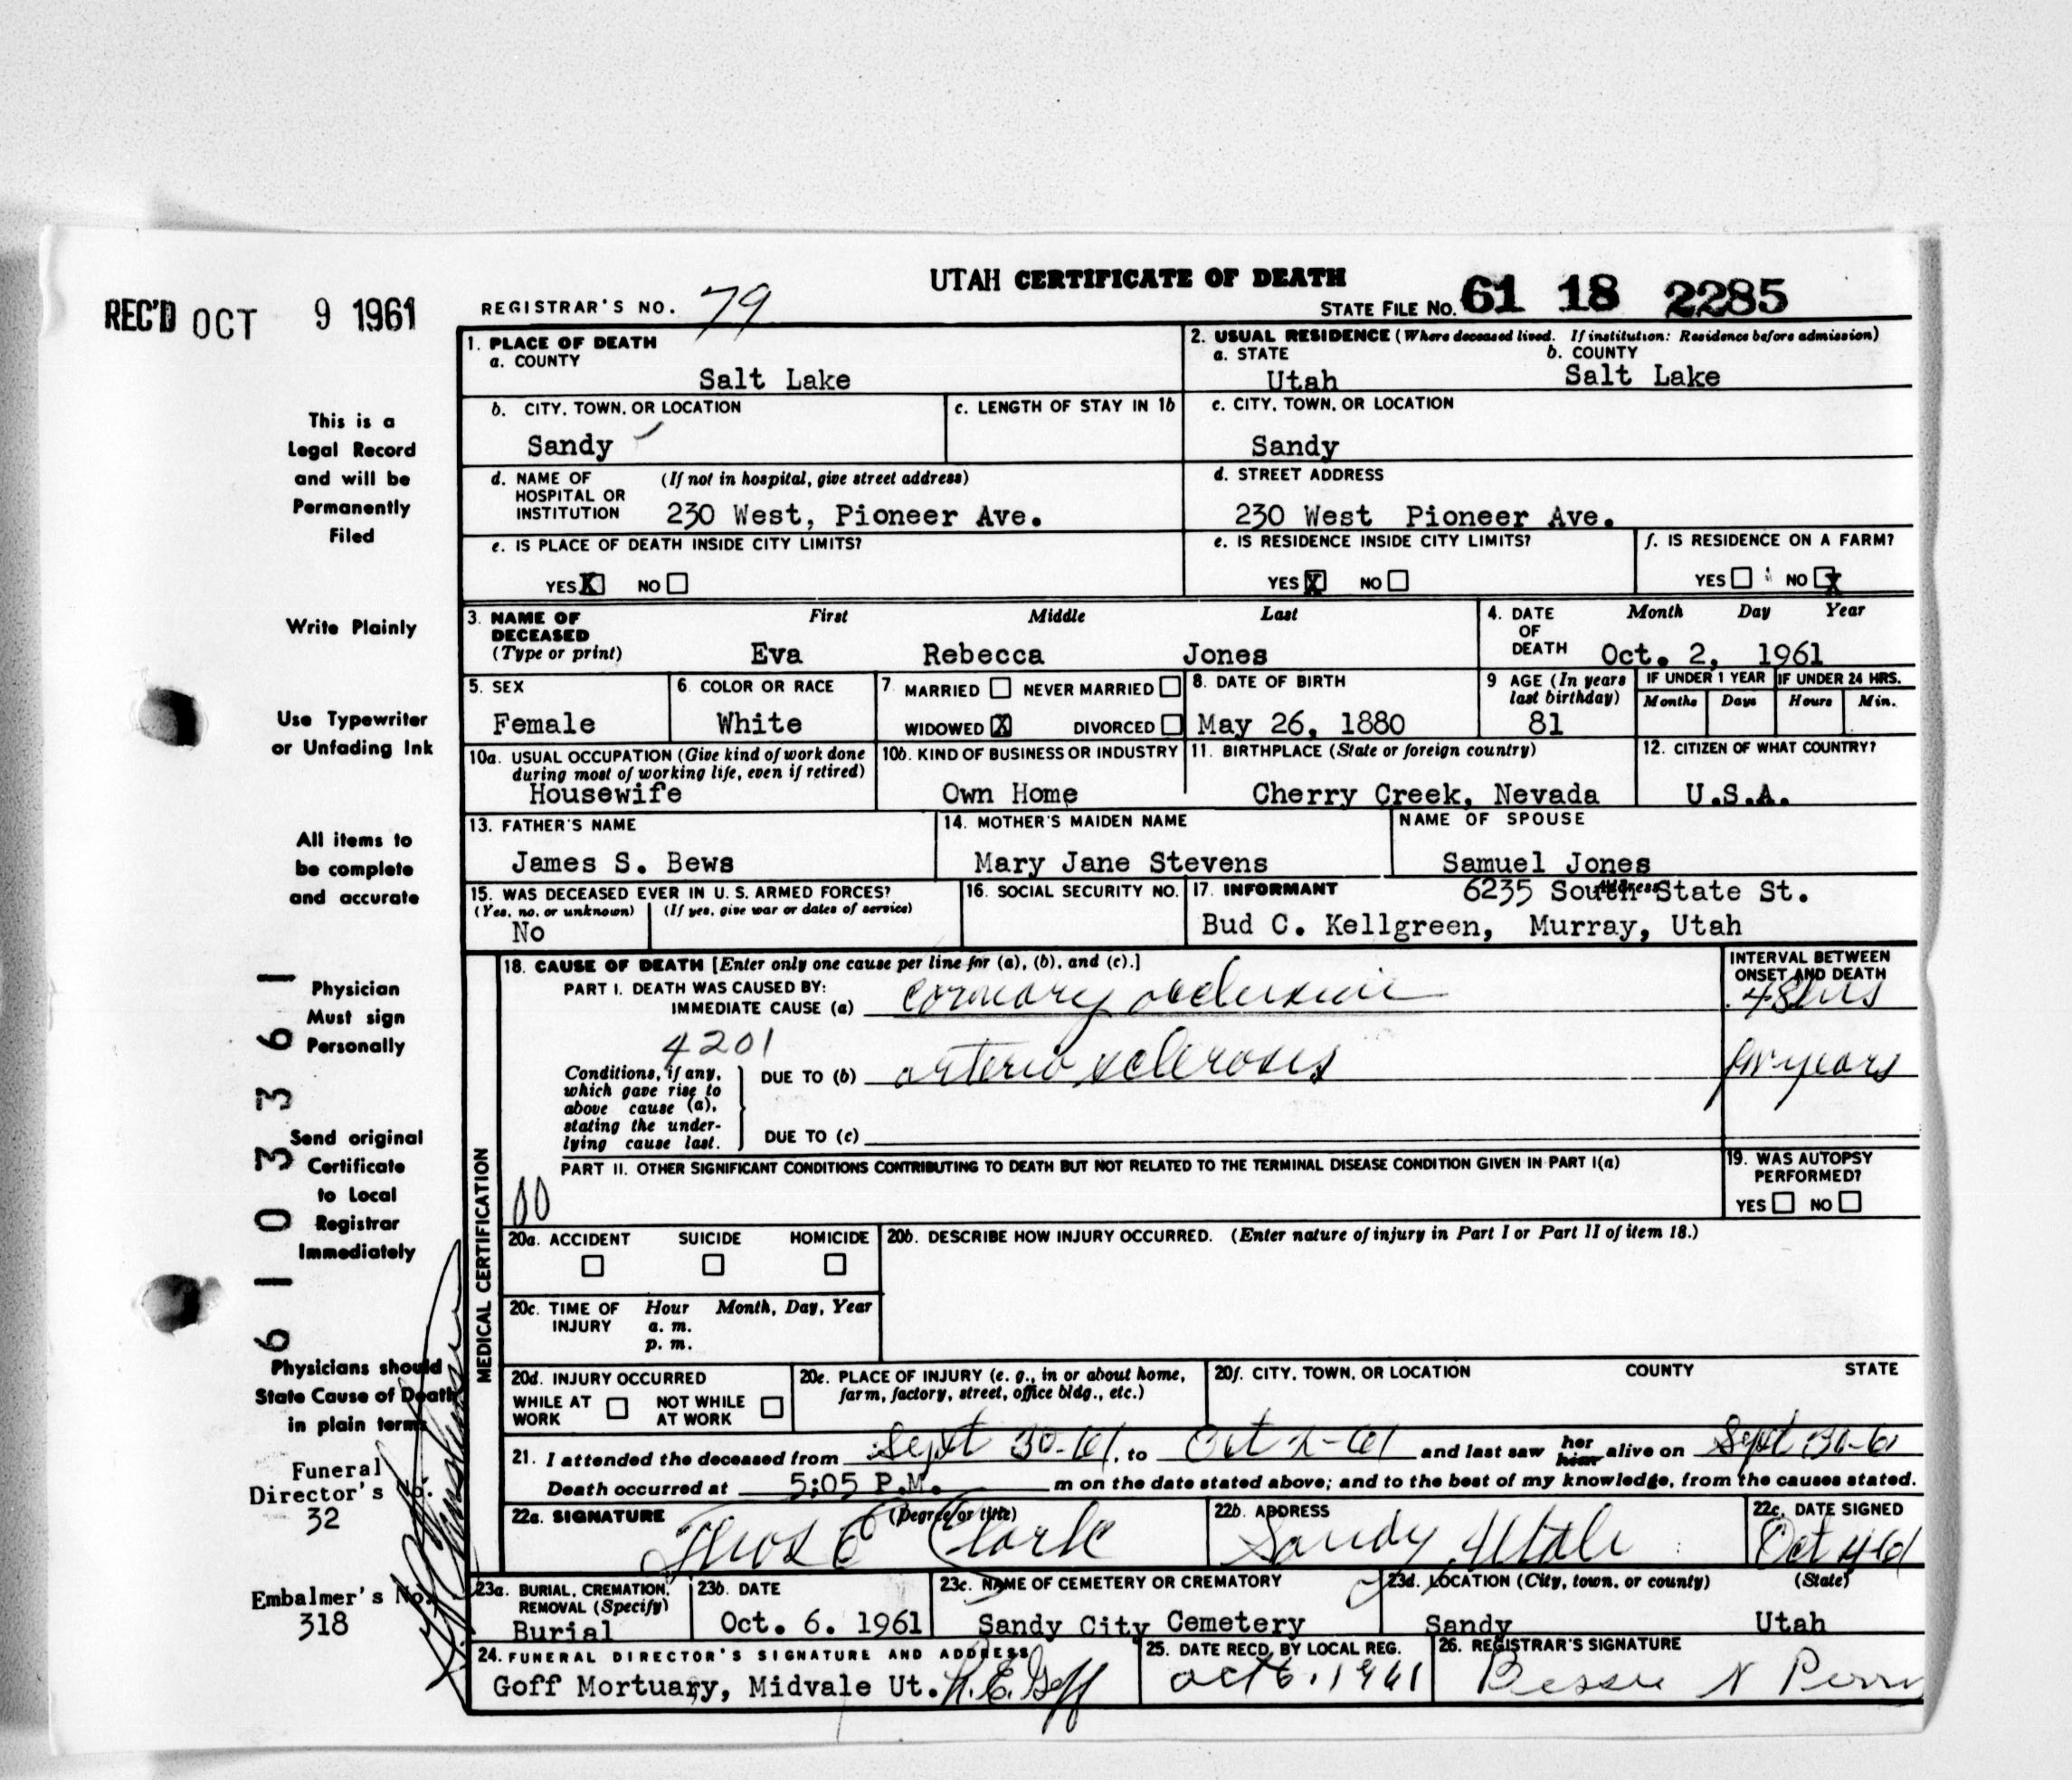 UTAH CERTIFICATE OF DEATH
REC'D OCT 9 1961
REGISTRAR'S NO. 79
STATE FILE NO. 61 18 2285
This is a
Legal Record
and will be
Permanently
Filed
Write Plainly
Use Typewriter
or Unfading Ink
All items to
be complete
and accurate
Physician
Must sign
Personally
Send original
Certificate
to Local
Registrar
Immediately
Physicians should
State Cause of Death
in plain terms
Funeral
Director's No.
32
Embalmer's No.
318
6103361
1. PLACE OF DEATH
a. COUNTY
Salt Lake
2. USUAL RESIDENCE (Where deceased lived. If institution: Residence before admission)
a. STATE
Utah
b. COUNTY
Salt Lake
b. CITY, TOWN, OR LOCATION
Sandy
c. LENGTH OF STAY IN 1b
c. CITY, TOWN, OR LOCATION
Sandy
d. NAME OF (If not in hospital, give street address)
HOSPITAL OR
INSTITUTION 230 West, Pioneer Ave.
d. STREET ADDRESS
230 West Pioneer Ave.
e. IS PLACE OF DEATH INSIDE CITY LIMITS?
YES X NO
e. IS RESIDENCE INSIDE CITY LIMITS?
YES X NO
f. IS RESIDENCE ON A FARM?
YES NO X
3. NAME OF First Middle Last
DECEASED
(Type or print) Eva Rebecca Jones
4. DATE Month Day Year
OF
DEATH Oct. 2, 1961
5. SEX
Female
6. COLOR OR RACE
White
7. MARRIED NEVER MARRIED
WIDOWED X DIVORCED
8. DATE OF BIRTH
May 26, 1880
9 AGE (In years
last birthday)
81
IF UNDER 1 YEAR
Months Days
IF UNDER 24 HRS.
Hours Min.
10a. USUAL OCCUPATION (Give kind of work done
during most of working life, even if retired)
Housewife
10b. KIND OF BUSINESS OR INDUSTRY
Own Home
11. BIRTHPLACE (State or foreign country)
Cherry Creek, Nevada
12. CITIZEN OF WHAT COUNTRY?
U.S.A.
13. FATHER'S NAME
James S. Bews
14. MOTHER'S MAIDEN NAME
Mary Jane Stevens
NAME OF SPOUSE
Samuel Jones
15. WAS DECEASED EVER IN U. S. ARMED FORCES?
(Yes, no, or unknown) (If yes, give war or dates of service)
No
16. SOCIAL SECURITY NO.
17. INFORMANT Address
6235 South State St.
Bud C. Kellgreen, Murray, Utah
MEDICAL CERTIFICATION
18. CAUSE OF DEATH [Enter only one cause per line for (a), (b), and (c).]
PART I. DEATH WAS CAUSED BY:
IMMEDIATE CAUSE (a) coronary
INTERVAL BETWEEN
ONSET AND DEATH
48 hrs
4201
Conditions, if any,
which gave rise to
above cause (a),
stating the under-
lying cause last.
DUE TO (b) arterio sclerosis
years
DUE TO (c)
PART II. OTHER SIGNIFICANT CONDITIONS CONTRIBUTING TO DEATH BUT NOT RELATED TO THE TERMINAL DISEASE CONDITION GIVEN IN PART I(a)
00
19. WAS AUTOPSY
PERFORMED?
YES NO
20a. ACCIDENT SUICIDE HOMICIDE
20b. DESCRIBE HOW INJURY OCCURRED. (Enter nature of injury in Part I or Part II of item 18.)
20c. TIME OF Hour Month, Day, Year
INJURY a. m.
p. m.
20d. INJURY OCCURRED
WHILE AT NOT WHILE
WORK AT WORK
20e. PLACE OF INJURY (e. g., in or about home,
farm, factory, street, office bldg., etc.)
20f. CITY, TOWN, OR LOCATION COUNTY STATE
21. I attended the deceased from Sept 30-61, to Oct 2-61 and last saw her him alive on Sept 30-61
Death occurred at 5:05 P.M. m on the date stated above; and to the best of my knowledge, from the causes stated.
22a. SIGNATURE (Degree or title)
Thos E Clark
22b. ADDRESS
Sandy Utah
22c. DATE SIGNED
Oct 4 61
23a. BURIAL, CREMATION,
REMOVAL (Specify)
Burial
23b. DATE
Oct. 6. 1961
23c. NAME OF CEMETERY OR CREMATORY
Sandy City Cemetery
23d. LOCATION (City, town, or county) (State)
Sandy Utah
24. FUNERAL DIRECTOR'S SIGNATURE AND ADDRESS
Goff Mortuary, Midvale Ut. Goff
25. DATE RECD. BY LOCAL REG.
Oct 6, 1961
26. REGISTRAR'S SIGNATURE
Bessie N